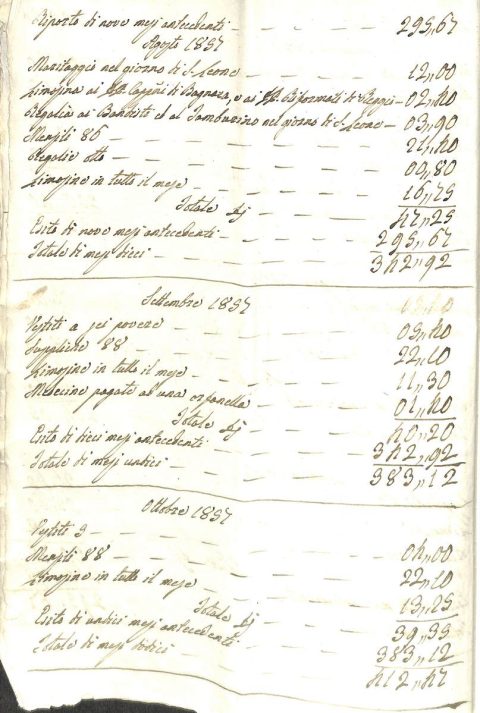 Riporto di nove mesi antecedenti — — — — 295,,67
Agosto 1857
Maritaggio nel giorno di S. Leone — — — — 12,,00
Limosina ai PP. Cappni di Bagnara, e ai PP. Riformati di Reggio — 02,,40
Regalia ai Bandisti ed al Tamburrino nel giorno di S. Leone — 03,,90
Mensili 86 — — — — 21,,40
Regalie otto — — — — 00,,80
Limosine in tutto il mese — — — — 06,,75
Totale Dj — — — 47,,25
Esito di nove mesi antecedenti — — — — 295,,67
Totale di mesi dieci — — — — 342,,92
Settembre 1857
Vestiti a sei povere — — — — 05,,40
Suppliche 88 — — — — 22,,10
Limosine in tutto il mese — — — — 11,,30
Medicine pagate ad una orfanella — — — — 01,,40
Totale Dj — — — 40,,20
Esito di dieci mesi antecedenti — — — — 342,,92
Totale di mesi undici — — — — 383,,12
Ottobre 1857
Vestiti 3 — — — — 04,,00
Mensili 88 — — — — 22,,10
Limosine in tutto il mese — — — — 13,,25
Totale Dj — — — 39,,35
Esito di undici mesi antecedenti — — — — 383,,12
Totale di mesi dodici — — — — 422,,47